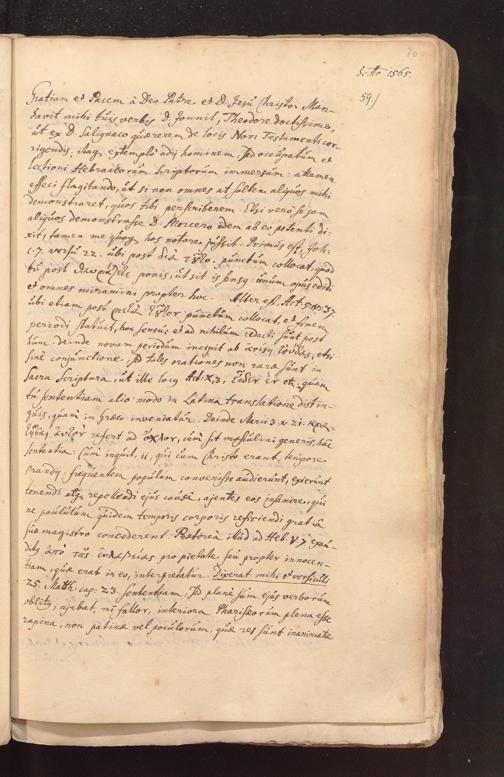 70
Scito 1565.
59.)
Gratiam et Pacem à Deo Patre et D. Jesu Christo. Man-
davit mihi tuis verbis D. Jonnil, Theodore doctissime,
ut ex D. Salignaco quærerem de locis Novi Testamenti cor-
rigendis, itaq extemplo adij hominem, sed occupatum et
lectioni Hebraicorum scriptorum immersum: attamen
effeci flagitando, ut si non omnes at saltem aliquos mihi
demonstraret, quos tibi perscriberem. Etsi verò se jam
aliquos demonstrasse D. Mercero idem ab eo petenti di-
xit, tamen me quoq hos notare jussit. Primus est Joh:
c. 7. versu 22. ubi post διὰ τᾶτο punctum collocat, quod
tu post θαυμάζετε ponis, ut sit is sensus: unum opus edidi
et omnes miramini propter hoc. Alter est Act. 5.
ubi etiam post punctum collocat, et finem
periodi statuit, hoc sensu: et ad nihilum redacti sunt post
hunc. Deinde novam periodum incipit ab etsi
sine conjunctione. Sed tales orationes non raræ sunt in
Sacra Scriptura, ut ille locus quam
tu sententiam alio modo in Latina translatione distin-
guis, quàm in Græco inveniatur. Deinde Marci 3. v. 21.
refert ad ὄχλον, cùm sit masculini generis, hâc
sententia: Cùm, inquit, ii, qui cum Christo erant, tempore
prandij frequentem populum convenisse audierunt, exierunt
tenendi atq repellendi ejus causâ, ajentes eos insanire, qui
ne paululum quidem temporis corporis reficiendi gratiâ
suo magistro concederent. Præterea illud ad Heb. 5. 7
ἀπὸ τῆς εὐλαβείας pro pietate seu propter innocen-
tiam, quæ erat in eo, interpretatur. Dixerat mihi et versiculi
25. Matth. cap: 23. sententiam, sed planè sum ejus verborum
oblitus, ajebat, ni fallor, interiora Pharisæorum plena esse
rapina, non patinæ vel poculorum, quæ res sunt inanimatæ